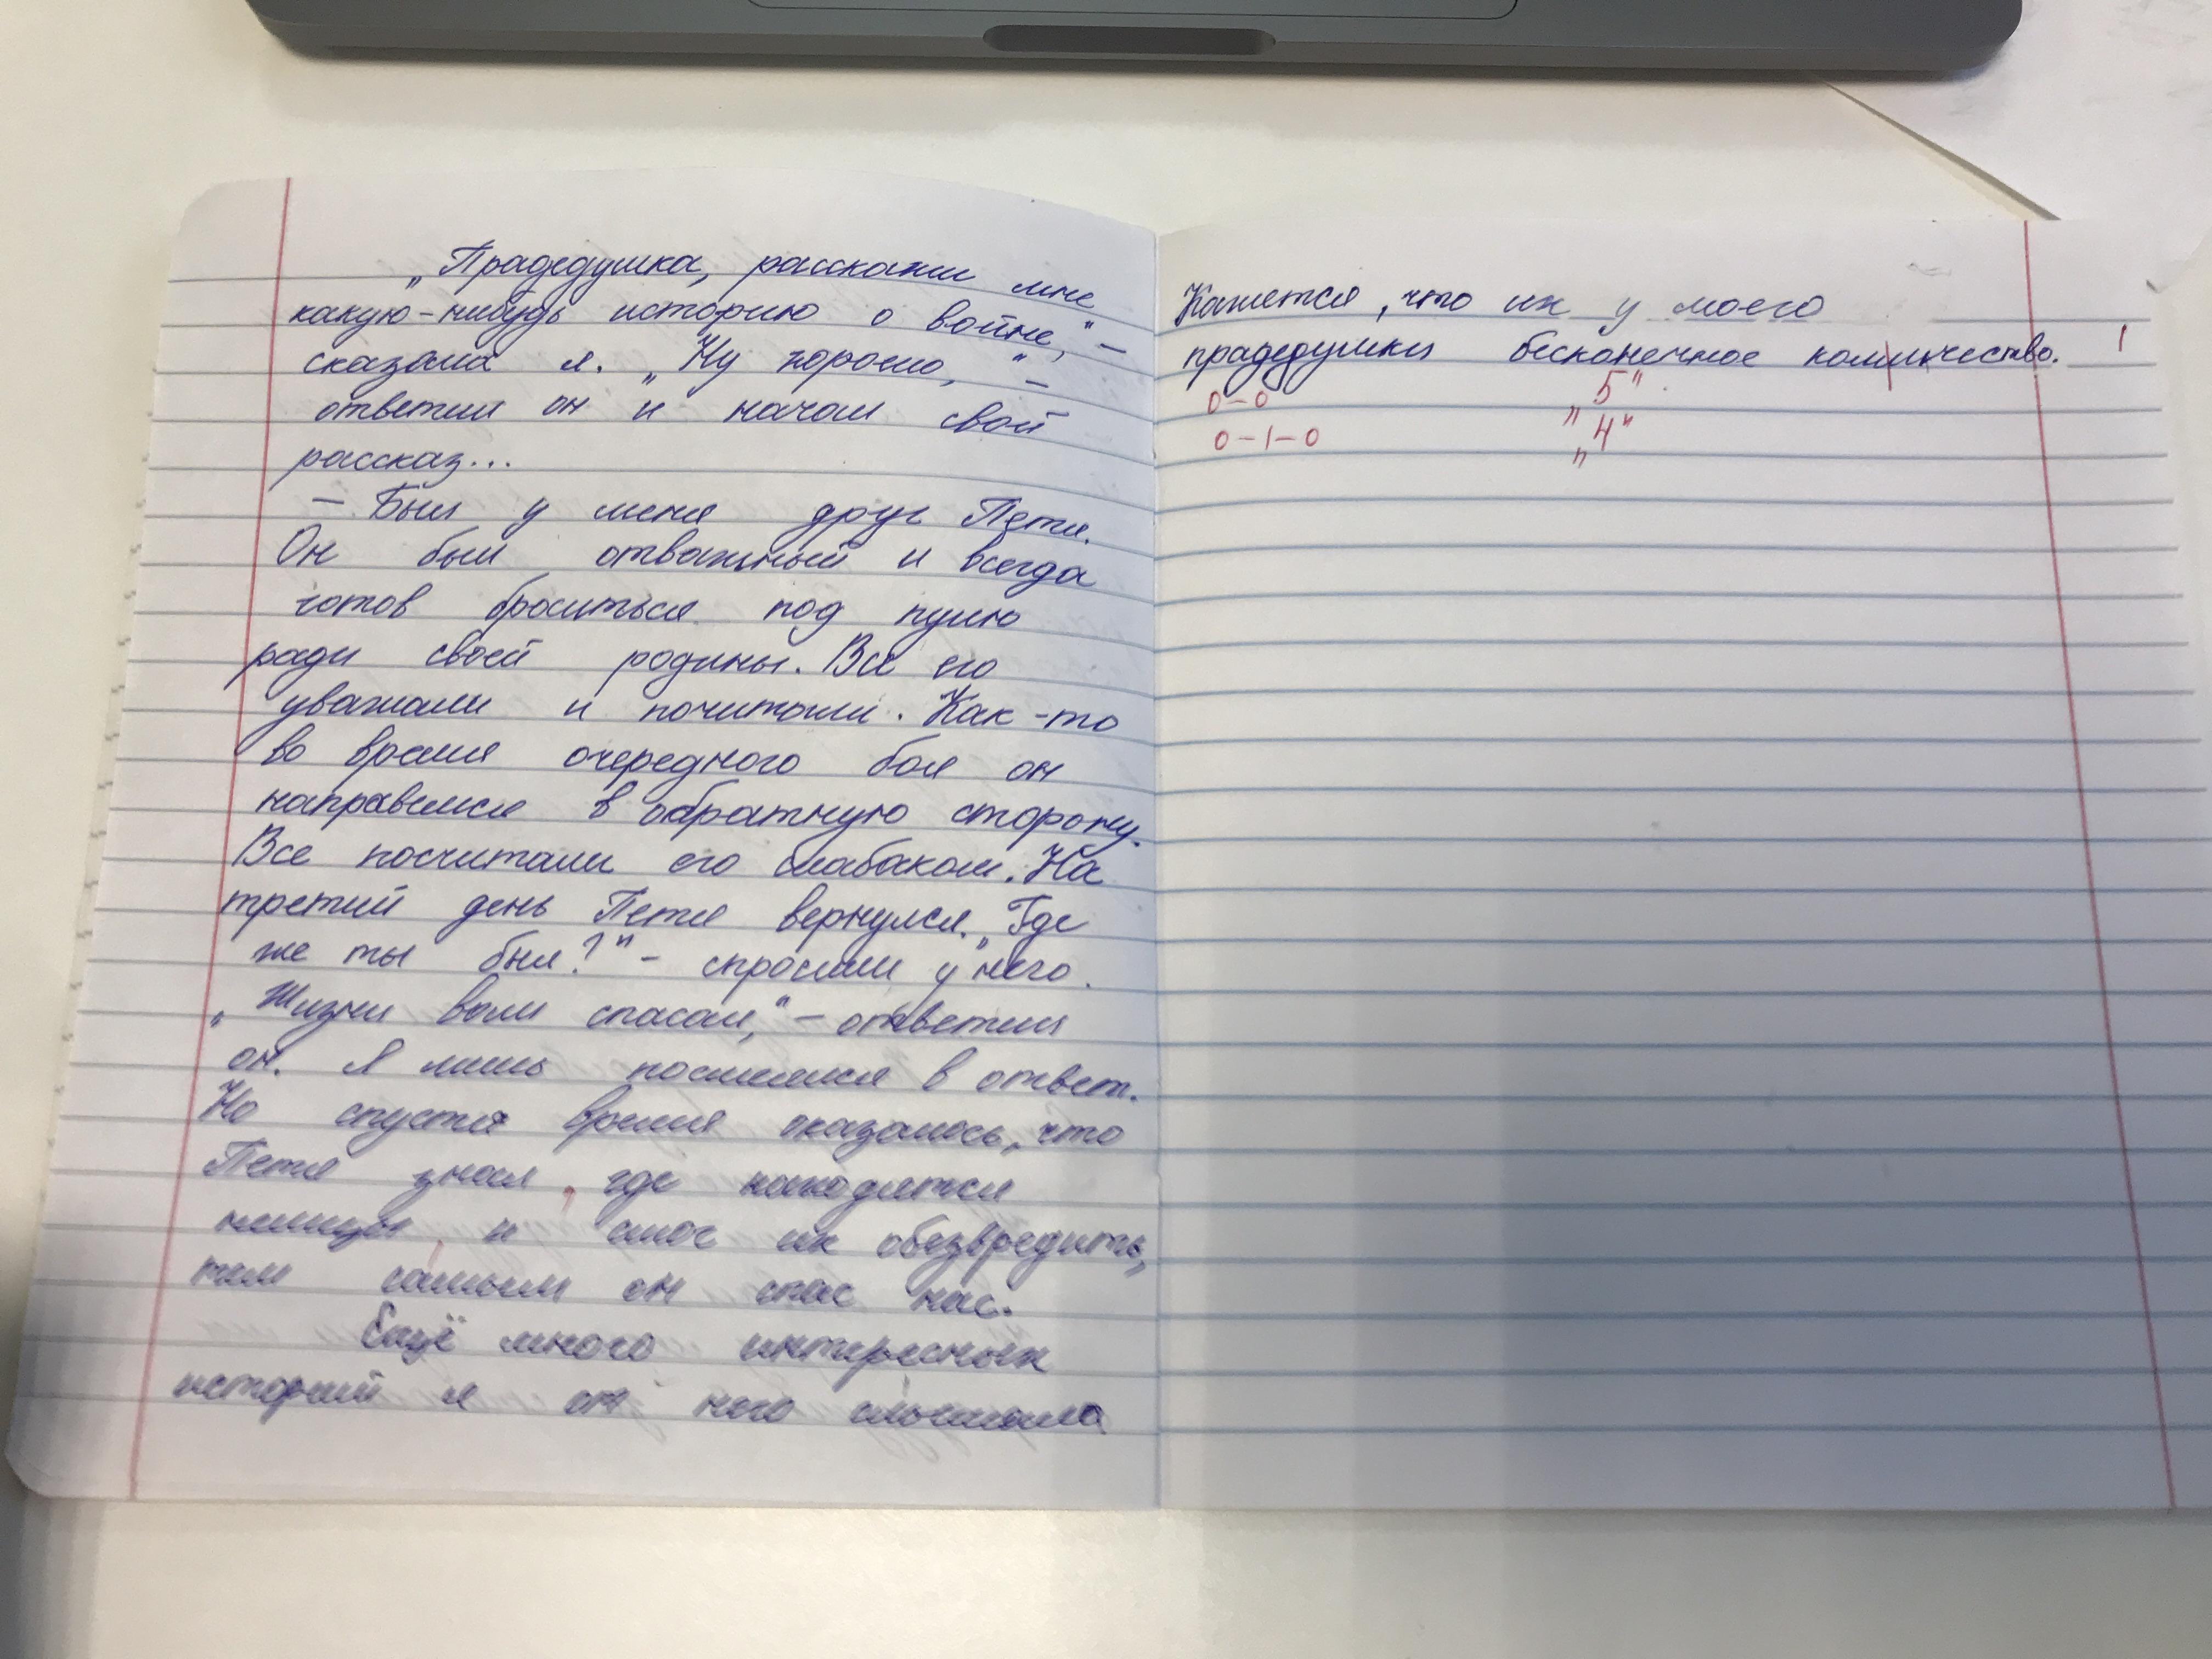 „Прадедушка, расскажи мне
какую-нибудь историю о войне," –
сказала я. „Ну хорошо," –
ответил он и начал свой
рассказ...
– Был у меня друг Петя.
Он был отважный и всегда
готов броситься под пулю
ради своей родины. Все его
уважали и почитали. Как-то
во время очередного боя он
направился в обратную сторону.
Все посчитали его слабаком. На
третий день Петя вернулся. „Где
же ты был?" – спросили у него.
„Жизни вам спасал," – ответил
он. Я лишь посмеялся в ответ.
Но спустя время оказалось, что
Петя знал, где находятся
немцы, и смог их обезвредить,
тем самым он спас нас.
Ещё много интересных
историй я от него слышала
Кажется, что их у моего
прадедушки бесконечное количество. 1
0–0 „5"
0–1–0 „4"